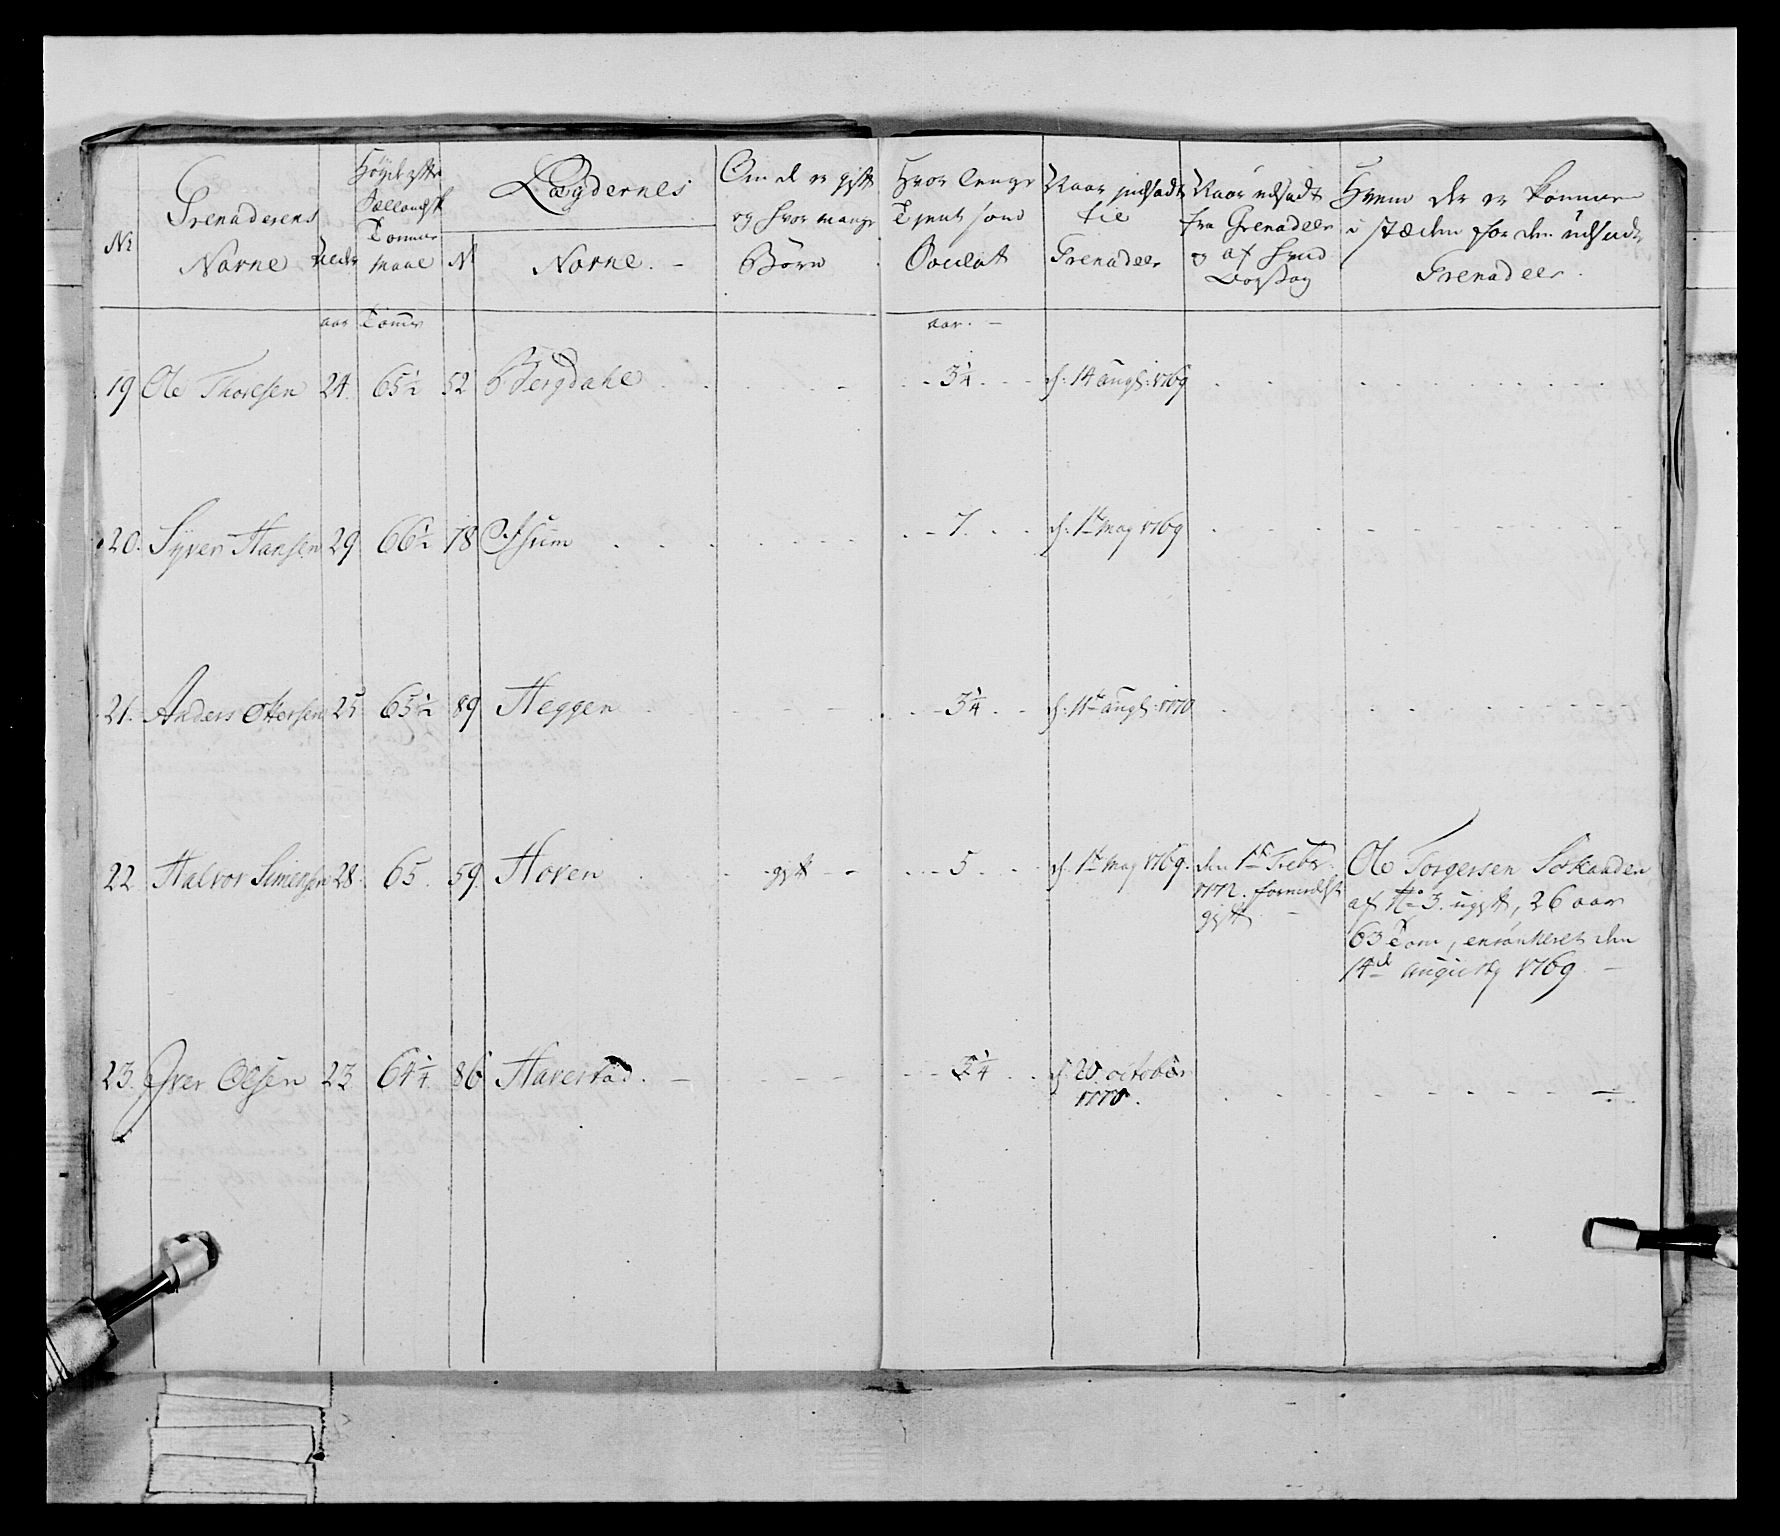 No
Grenaderens
Navne
Alder
Høyde efter
Siællandsk
Tomme
Maal
Lægdernes
No
Navne. -
Om de er gift
og hvor mange
Børn
Hvor lenge
Tjent som
Soldat
Naar indsadt
til
Grenadeer
Naar udsadt
fra Grenadeer
og af hvad
Aarsag
Hvem der er kommen
i stæden for den udsadte
Grenadeer.
aar Tomer aar. -
19 Ole Thoresen 24. 65½ 52 Bergdahl - - 3¼ - - d: 14 augs: 1769
20. Syver Hansen 29 66½ 78 Issum - - 7. - - d: 1te May 1769
21. Anders Ottersen 25 65½ 89 Heggen - - 3¼ - - d: 11te augs: 1770
22 Halvor Simensen 28. 65. 59. Hoven - - gift - - 5 - - d: 1te May 1769. den 1te Febr. Ole Torgersen
1772. formedelst af No 3. ugift, 26 aar
gift - 63 Tom, enroulleret den
14de augusty 1769. -
23. Iver Olsen 23 64¼ 86 Haverstad. - - - ¼ - - d: 20 october
1770.